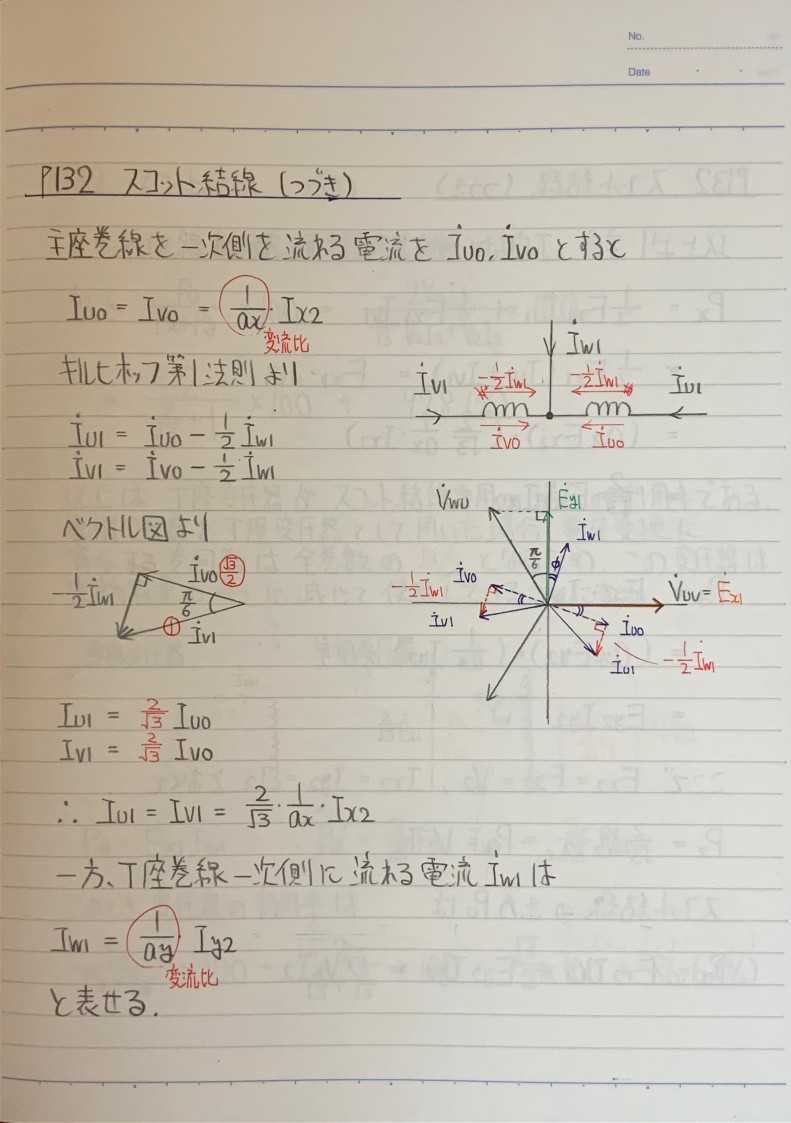 No.
Date
P132 スコット結線 (つづき)
主座巻線を一次側を流れる電流を İu0, İv0 とすると
Iu0 = Iv0 = 1/ax · Ix2
変流比
キルヒホッフ第1法則より
İu1 = İu0 − 1/2 İw1
İv1 = İv0 − 1/2 İw1
İw1
İv1
−1/2 İw1
−1/2 İw1
İu1
İv0
İu0
ベクトル図より
−1/2 İw1
İv0 √3/2
π/6
1
İv1
V̇wu
Ėy1
İw1
π/6
φ
−1/2 İw1
İv0
İv1
V̇uv = Ėx1
İu0
İu1
−1/2 İw1
Iu1 = 2/√3 Iu0
Iv1 = 2/√3 Iv0
∴ Iu1 = Iv1 = 2/√3 · 1/ax · Ix2
一方、T座巻線一次側に流れる電流 İw1 は
Iw1 = 1/ay · Iy2
変流比
と表せる.